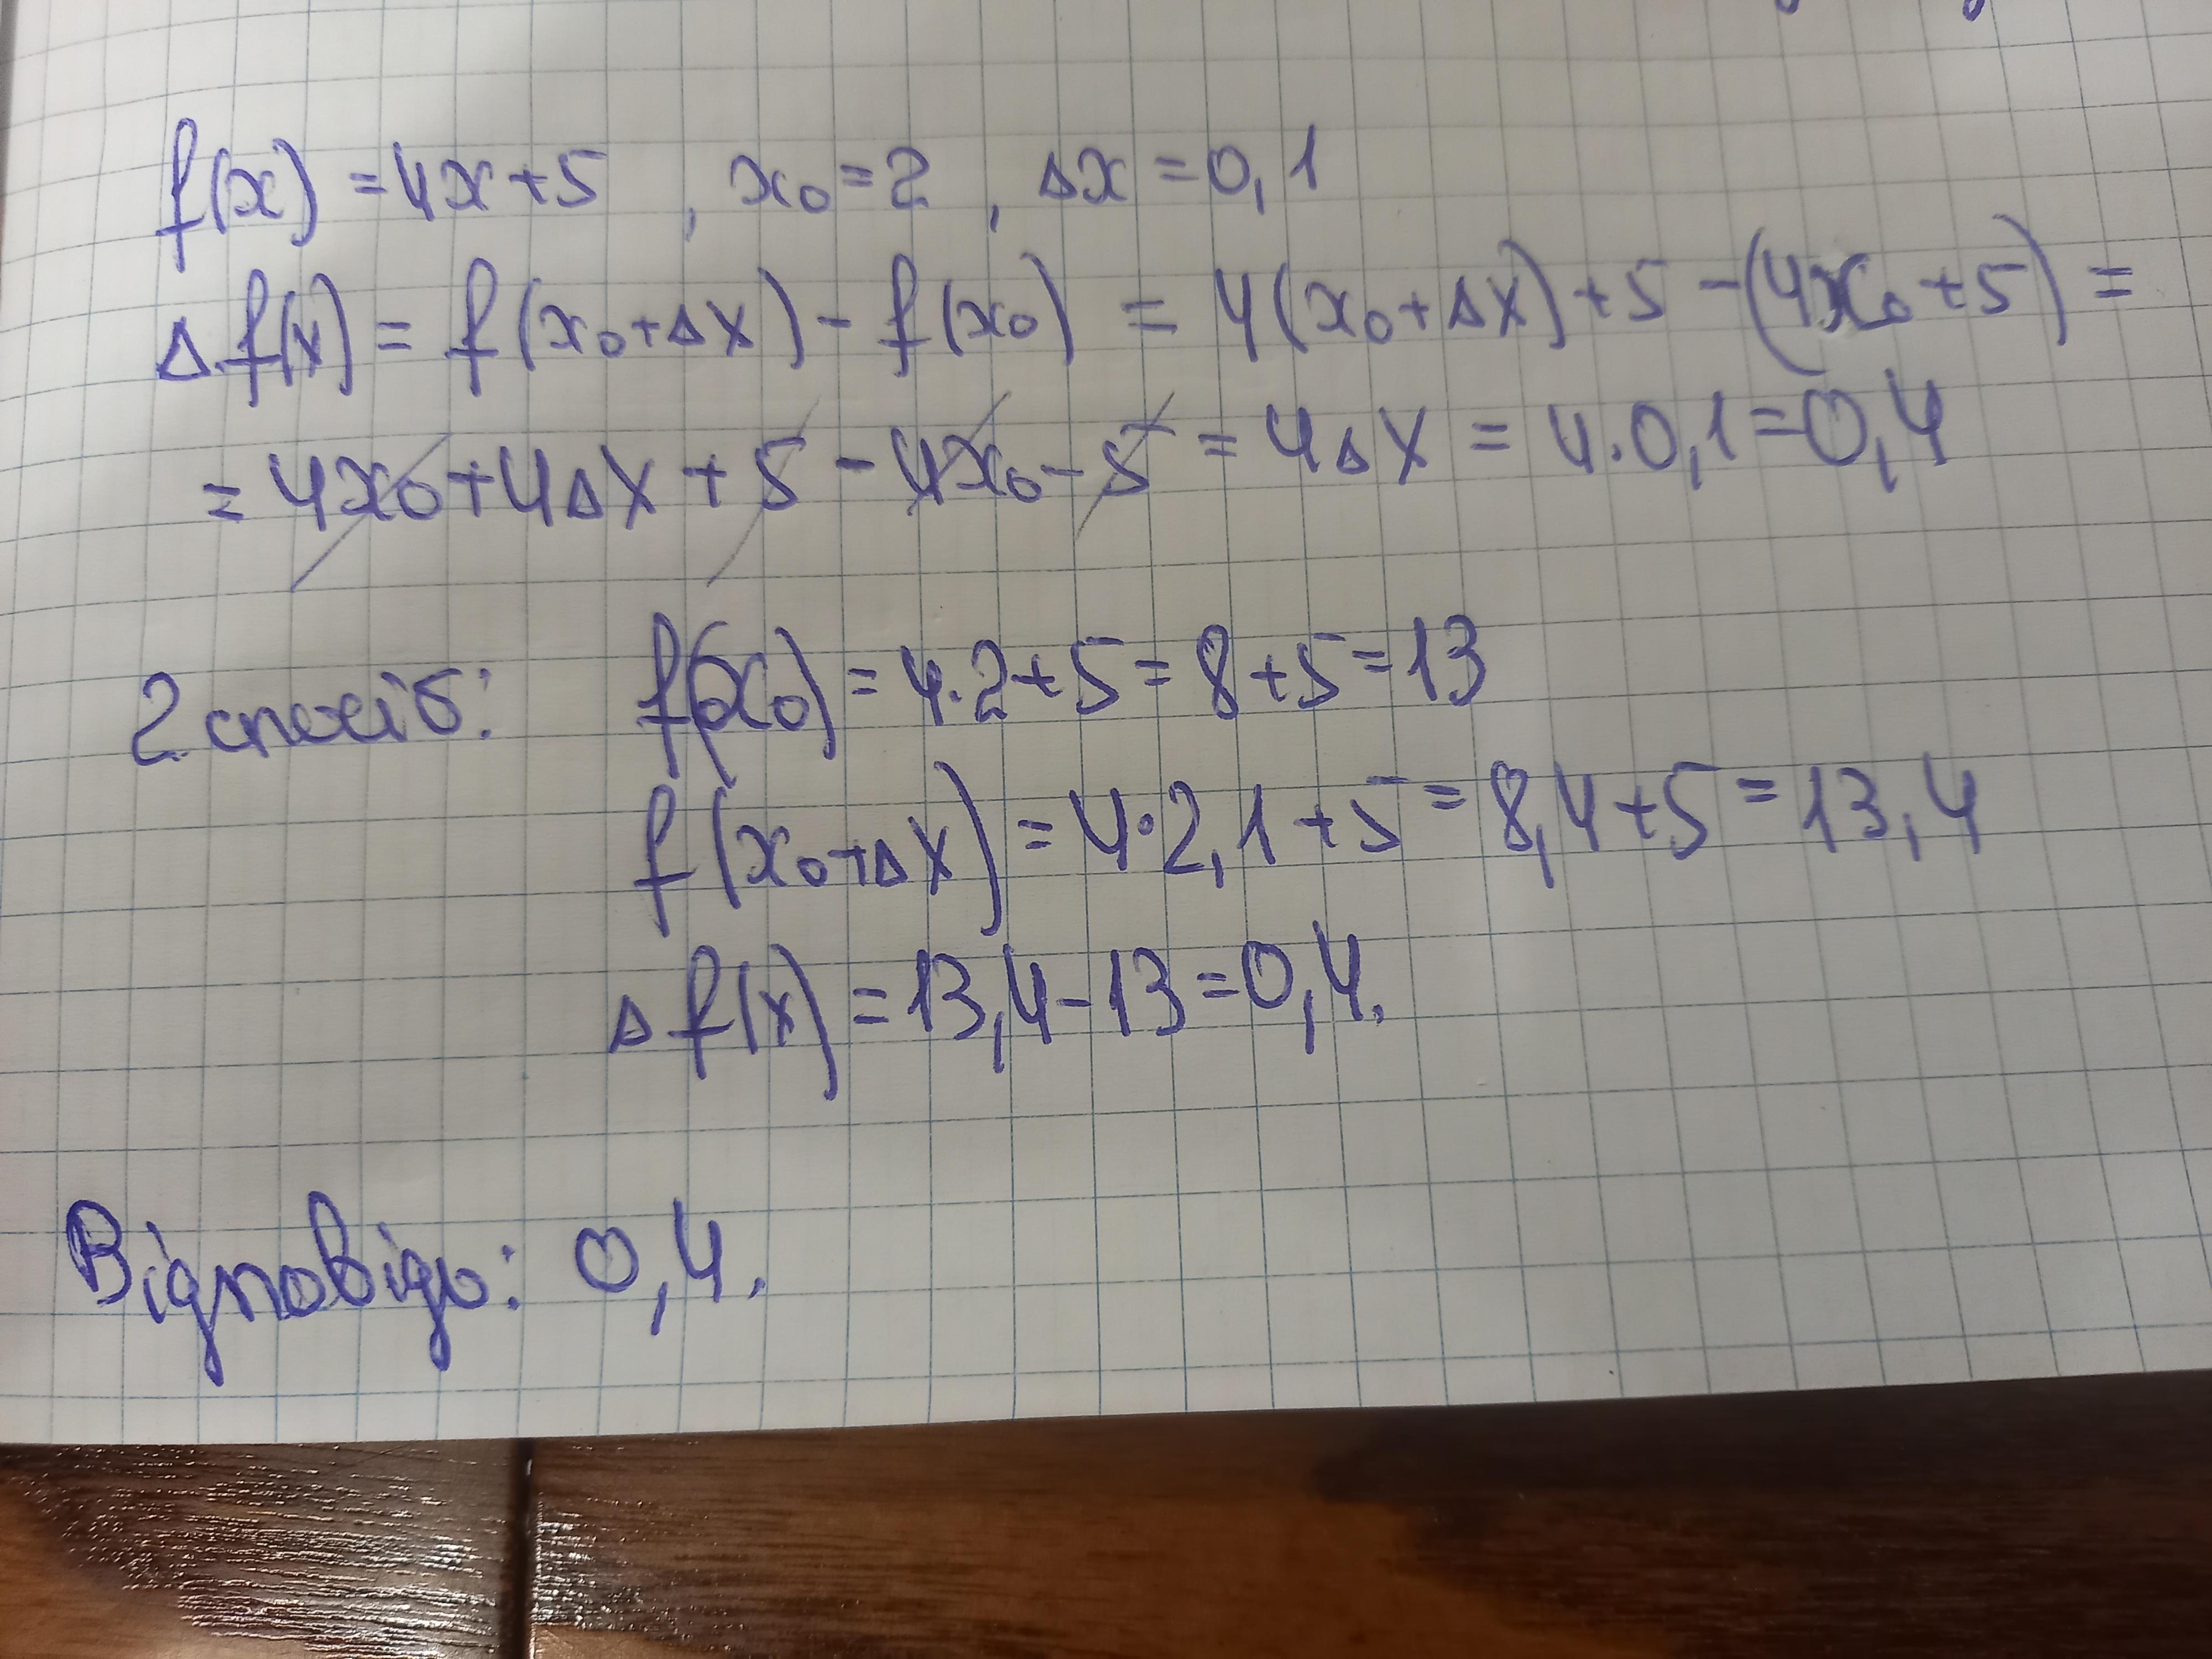 f(x) = 4x+5 , x₀ = 2 , Δx = 0,1
Δf(x) = f(x₀+Δx) - f(x₀) = 4(x₀+Δx)+5 - (4x₀+5) =
= 4x₀+4Δx+5 - 4x₀ - 5 = 4Δx = 4·0,1=0,4
2 спосіб: f(x₀) = 4·2+5 = 8+5=13
f(x₀+Δx) = 4·2,1+5 = 8,4+5 = 13,4
Δf(x) = 13,4-13=0,4.
Відповідь: 0,4.